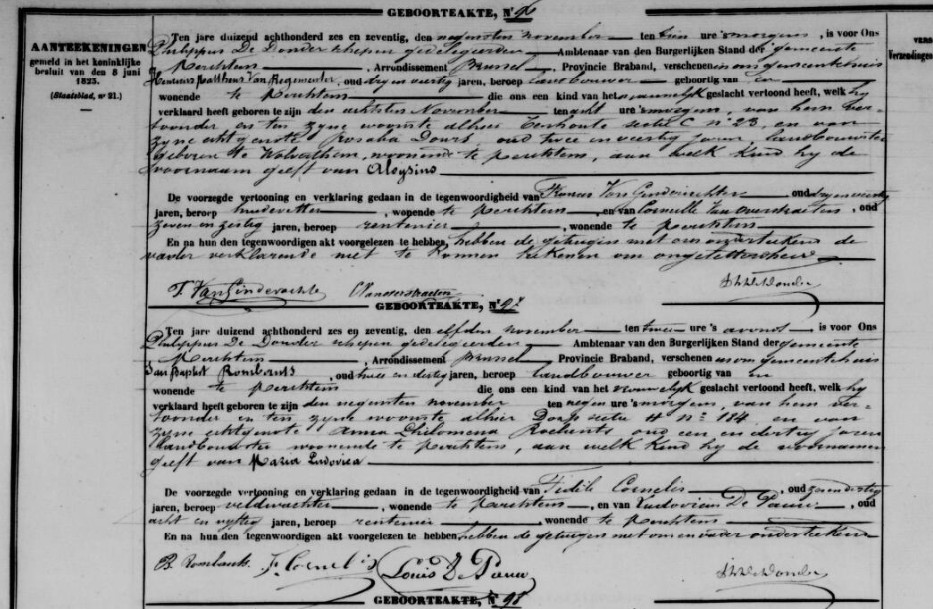 GEBOORTEAKTE, N.
AANTEEKENINGEN
gemeld in het koninklijke
besluit van den 8 juni
1823.
(Staatsblad, nr 21.)
VERS
Verzendingen
Ten jare duizend achthonderd zes en zeventig, den negensten november ten ure 's morgens, is voor Ons
Philippus De Donder schepen gedelegeerden Ambtenaar van den Burgerlijken Stand der gemeente
Merchtem, Arrondissement Brussel, Provincie Braband, verschenen in ons gemeentehuis
Van oud dry en veertig jaren, beroep landbouwer geboortig van en
wonende te Merchtem die ons een kind van het mannelyk geslacht vertoond heeft, welk hy
verklaard heeft geboren te zijn den achtsten November ten acht ure 's morgens van hem ver-
toonder en ten zyne woonste alhier sectie C n° 23, en van
zyne echtgenote oud twee en veertig jaren landbouwster
geboren te Wolverthem, woonende te Merchtem, aan welk kind hy de
voornaam geeft van Aloysius
De voorzegde vertooning en verklaring gedaan in de tegenwoordigheid van Van Ginderachter oud dry en veertig
jaren, beroep, wonende te Merchtem, en van Cornelle Van Overstraeten, oud
zeven en zestig jaren, beroep rentenier, wonende te Merchtem
En na hun den tegenwoordigen akt voorgelezen te hebben, hebben de getuigen met ons onderteekend de
vader verklarende niet te konnen teekenen om ongeletterdheid
T. Van Ginderachter Vanoverstraeten PhDeDonder
GEBOORTEAKTE, N. 97
Ten jare duizend achthonderd zes en zeventig, den elfden november ten twee ure 's avonds is voor Ons
Philippus De Donder schepen gedelegeerden Ambtenaar van den Burgerlijken Stand der gemeente
Merchtem, Arrondissement Brussel, Provincie Braband, verschenen in ons gemeentehuis
Jan Baptist Rombauts, oud twee en dertig jaren, beroep landbouwer geboortig van en
wonende te Merchtem die ons een kind van het vrouwelyk geslacht vertoond heeft, welk hy
verklaard heeft geboren te zijn den negensten november ten negen ure 's morgens van hem ver-
toonder en ten zyne woonste alhier Dorp sectie H n° 184 en van
zyne echtgenote Anna Philomena oud een en dertig jaren
landbouwster woonende te Merchtem, aan welk kind hy de voornamen
geeft van Maria Ludovica
De voorzegde vertooning en verklaring gedaan in de tegenwoordigheid van Fidèle Cornelis, oud zes en dertig
jaren, beroep veldwachter, wonende te Merchtem, en van Ludovicus De Pauw, oud
acht en vyftig jaren, beroep rentenier, wonende te Merchtem
En na hun den tegenwoordigen akt voorgelezen te hebben, hebben de getuigen met ons en vader onderteekend
B. Rombauts. F. Cornelis Louis De Pauw PhDeDonder
GEBOORTEAKTE, N. 98